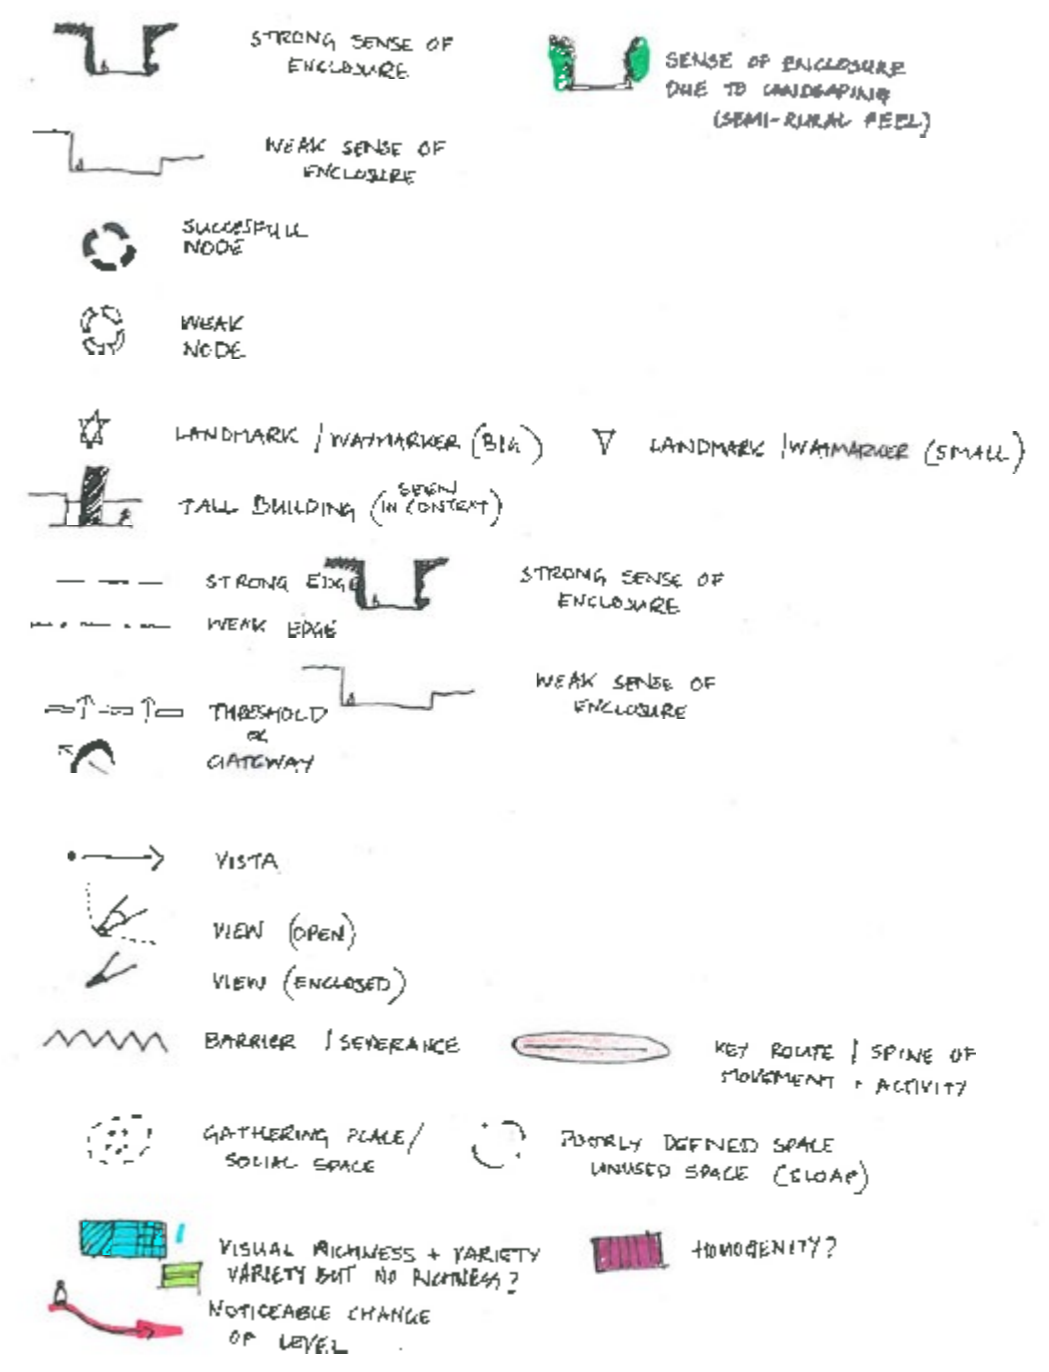 STRONG SENSE OF
ENCLOSURE
SENSE OF ENCLOSURE
DUE TO LANDSAPING
(SEMI-RURAL FEEL)
WEAK SENSE OF
ENCLOSURE
SUCCESFULL
NODE
WEAK
NODE
LANDMARK / WAYMARKER (BIG)
LANDMARK / WAYMARKER (SMALL)
TALL BUILDING (SEEN IN CONTEXT)
STRONG EDGE
STRONG SENSE OF
ENCLOSURE
WEAK EDGE
WEAK SENSE OF
ENCLOSURE
THRESHOLD
OR
GATEWAY
VISTA
VIEW (OPEN)
VIEW (ENCLOSED)
BARRIER / SEVERANCE
KEY ROUTE / SPINE OF
MOVEMENT + ACTIVITY
GATHERING PLACE/
SOCIAL SPACE
POORLY DEFINED SPACE
UNUSED SPACE (SLOAP)
VISUAL RICHNESS + VARIETY
VARIETY BUT NO RICHNESS?
HOMOGENITY?
NOTICEABLE CHANGE
OF LEVEL